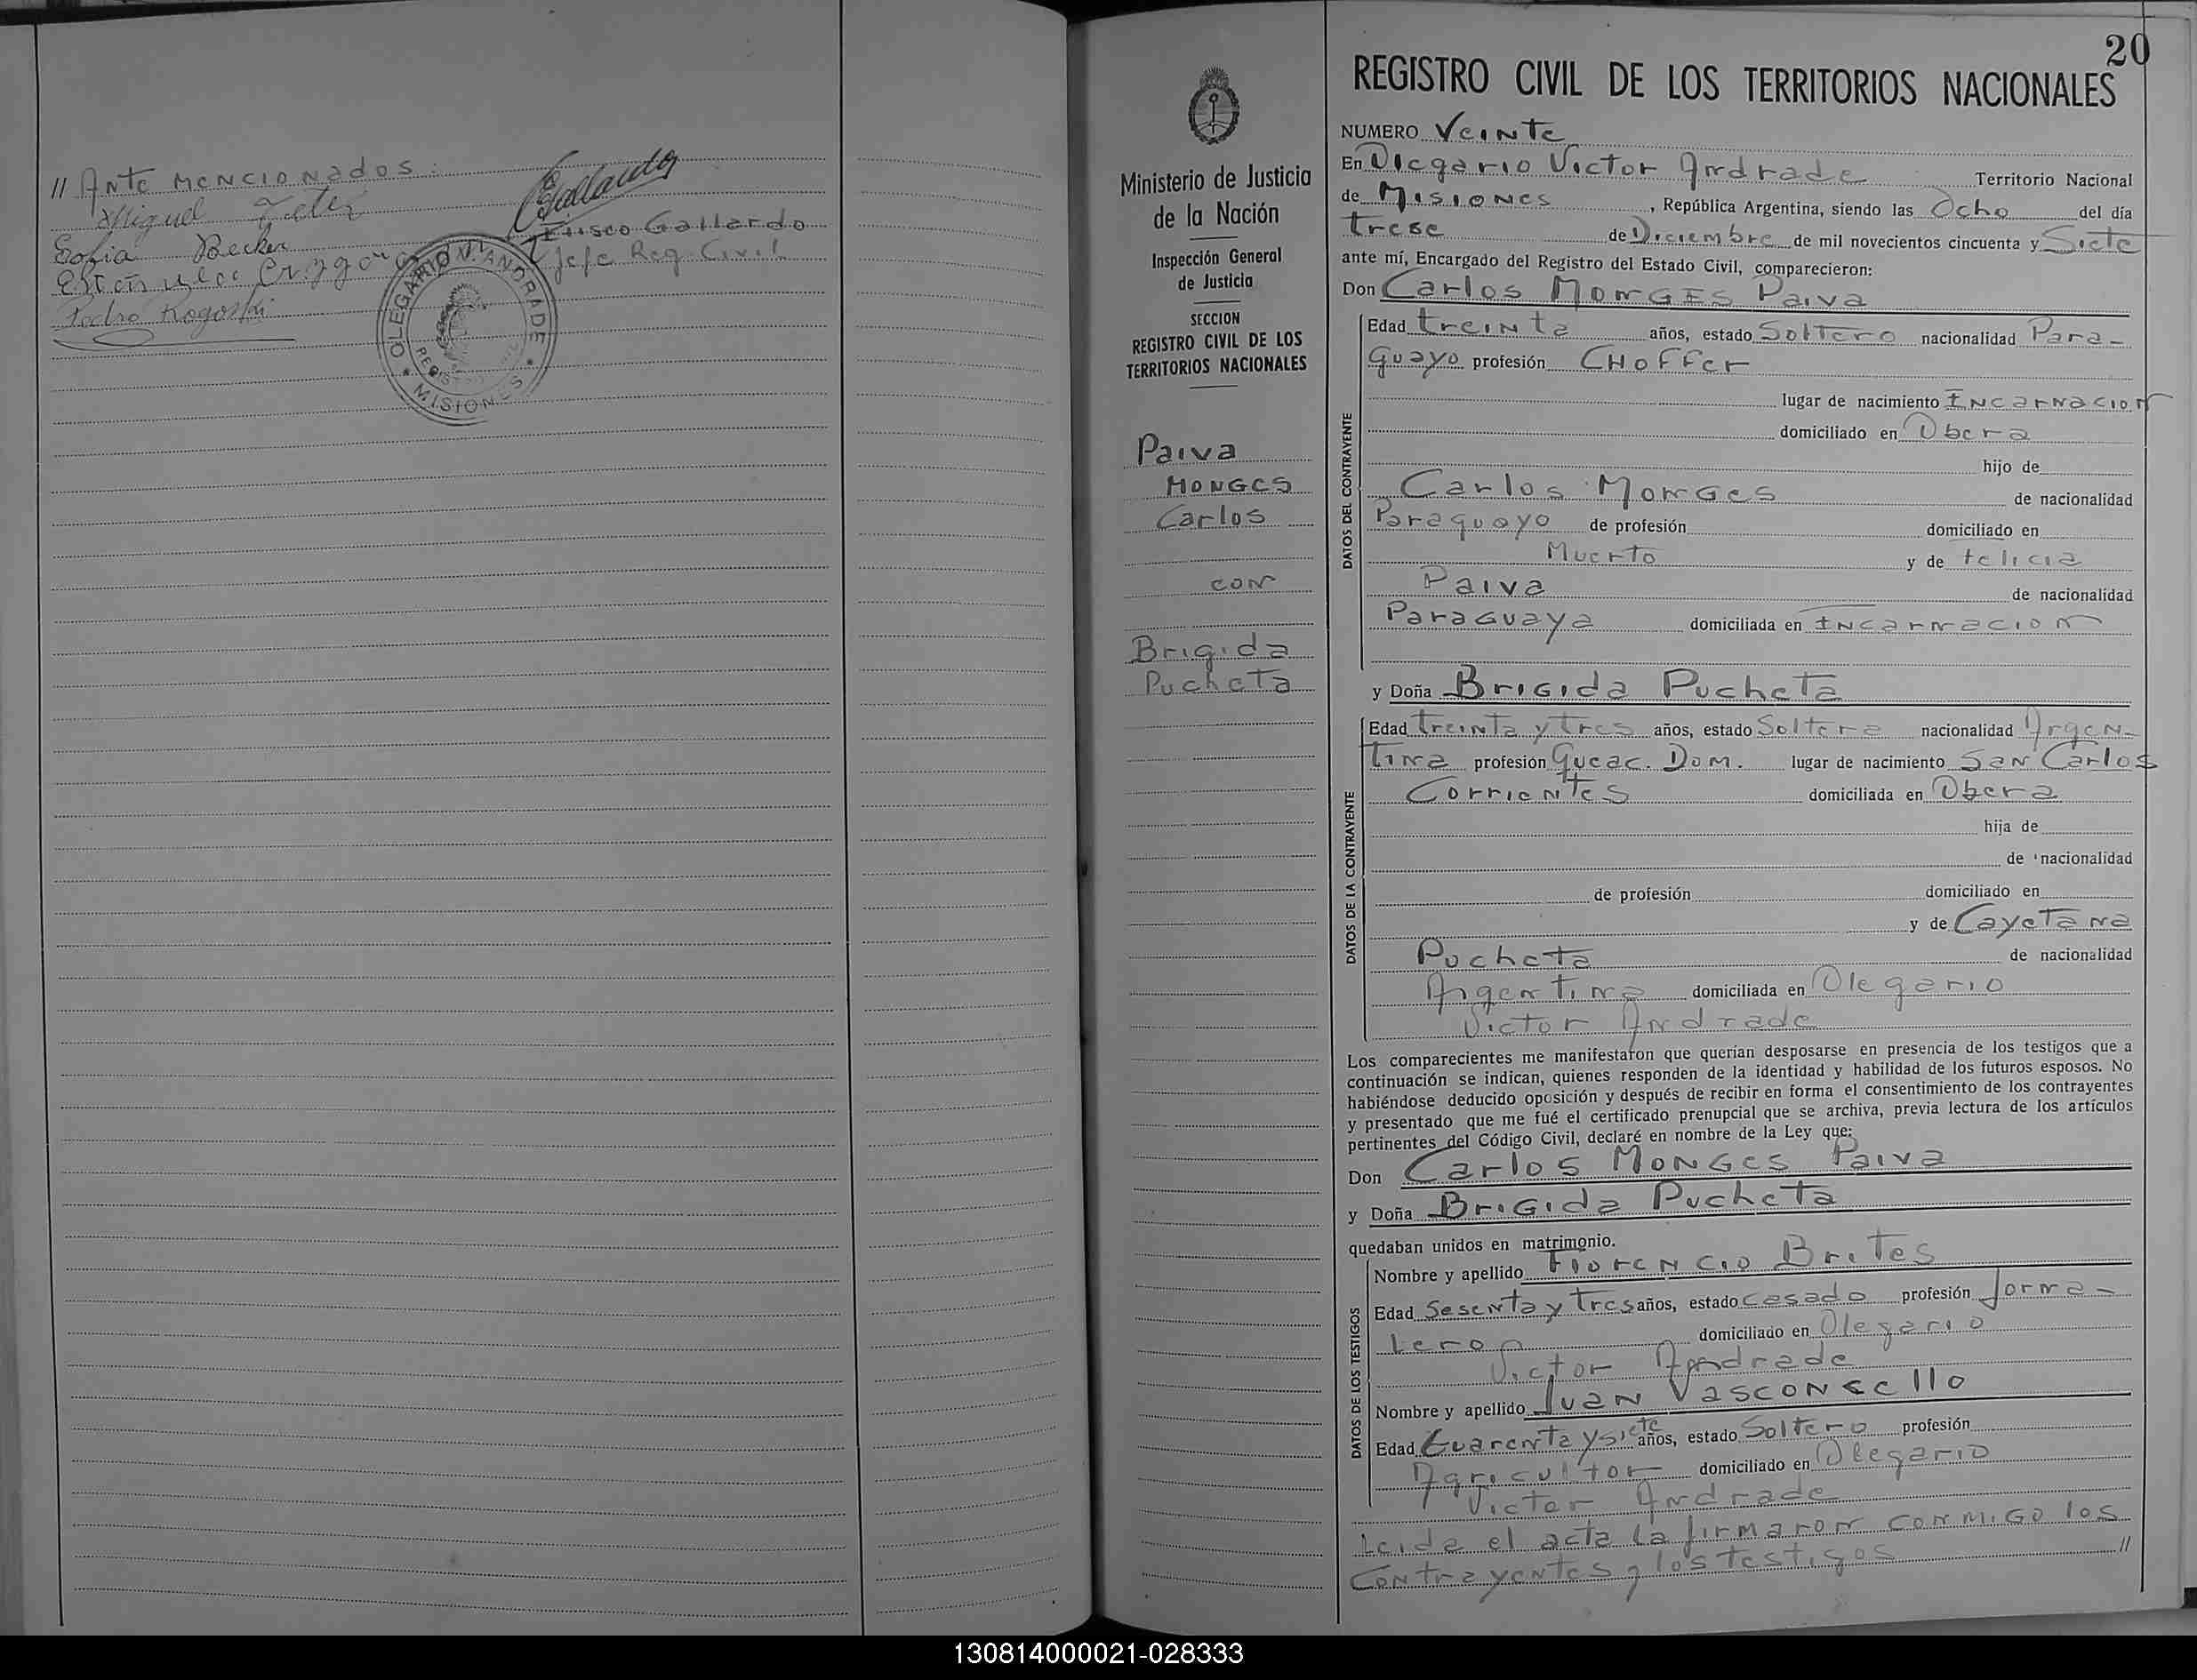 // Ante mencionados:
Miguel
Sofia Becker
Eliseo Gallardo
Jefe Reg. Civil
Pedro
OLEGARIO V. ANDRADE
MISIONES
Ministerio de Justicia
de la Nación
Inspección General
de Justicia
SECCION
REGISTRO CIVIL DE LOS
TERRITORIOS NACIONALES
Paiva
Monges
Carlos
con
Brigida
Pucheta
20
REGISTRO CIVIL DE LOS TERRITORIOS NACIONALES
NUMERO Veinte
En Olegario Victor Andrade Territorio Nacional
de Misiones, República Argentina, siendo las Ocho del día
trese de Diciembre de mil novecientos cincuenta y Siete
ante mí, Encargado del Registro del Estado Civil, comparecieron:
Don Carlos MONGES Paiva
DATOS DEL CONTRAYENTE
Edad treinta años, estado Soltero nacionalidad Para-
guayo profesión CHOFFer
lugar de nacimiento Incarnacion
domiciliado en Obera
hijo de
Carlos Monges de nacionalidad
Paraguayo de profesión domiciliado en
Muerto y de Felicia
Paiva de nacionalidad
Paraguaya domiciliada en Incarnacion
y Doña Brigida Pucheta
DATOS DE LA CONTRAYENTE
Edad treinta y tres años, estado Soltera nacionalidad Argen-
tina profesión Queac. Dom. lugar de nacimiento San Carlos
Corrientes domiciliada en Obera
hija de
de nacionalidad
de profesión domiciliado en
y de Cayetana
Pucheta de nacionalidad
Argentina domiciliada en Olegario
Victor Andrade
Los comparecientes me manifestaron que querían desposarse en presencia de los testigos que a
continuación se indican, quienes responden de la identidad y habilidad de los futuros esposos. No
habiéndose deducido oposición y después de recibir en forma el consentimiento de los contrayentes
y presentado que me fué el certificado prenupcial que se archiva, previa lectura de los artículos
pertinentes del Código Civil, declaré en nombre de la Ley que:
Don Carlos Monges Paiva
y Doña Brigida Pucheta
quedaban unidos en matrimonio.
DATOS DE LOS TESTIGOS
Nombre y apellido Florencio Brites
Edad Sesenta y tres años, estado casado profesión Jorna-
lero domiciliado en Olegario
Victor Andrade
Nombre y apellido Juan Vasconcello
Edad Cuarenta y siete años, estado Soltero profesión
Agricultor domiciliado en Olegario
Victor Andrade
Leida el acta la firmaron conmigo los
contrayentes y los testigos //
130814000021-028333